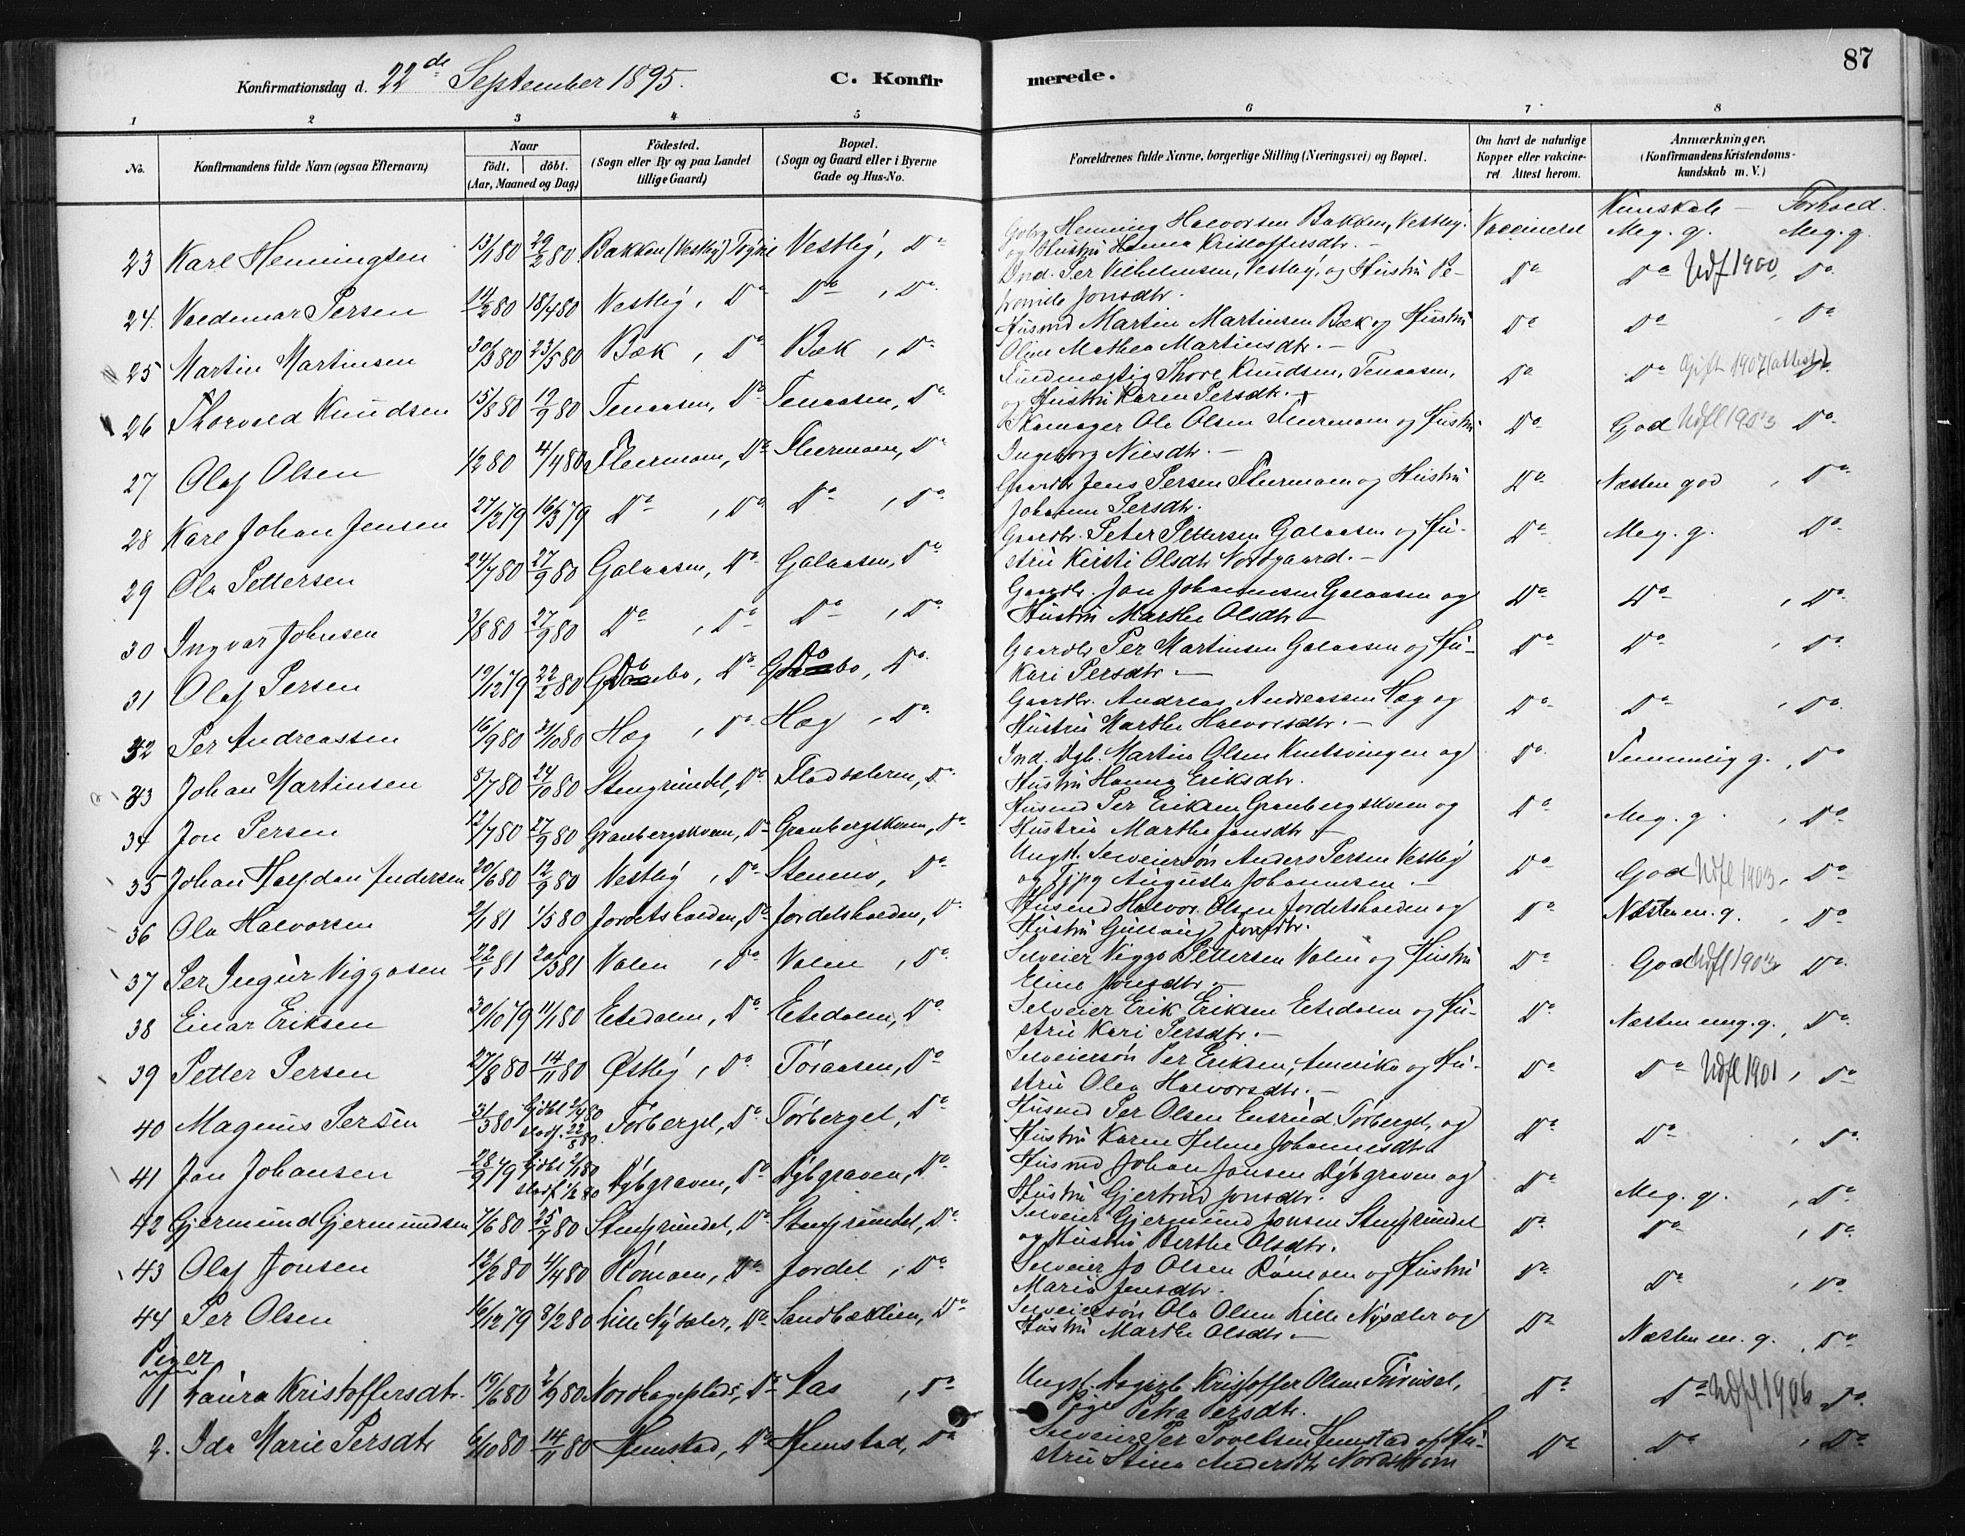 Konfirmationsdag d. 22de September 1895.
C. Konfirmerede.
87
1 2 3 4 5 6 7 8
No.
Konfirmandens fulde Navn (ogsaa Efternavn).
Naar
födt. döbt.
(Aar, Maaned og Dag)
Födested.
(Sogn eller By og paa Landet
tillige Gaard)
Bopæl.
(Sogn og Gaard eller i Byerne
Gade og Hus-No.
Forældrenes fulde Navne, borgerlige Stilling (Næringsvei) og Bopæl.
Om havt de naturlige
Kopper eller vakcine-
ret Attest herom.
Anmærkninger.
(Konfirmandens Kristendoms-
kundskab m. V.)
Kunskab – Forhold.
23 Karl Henningsen 13/1 80 29/2 80 Bakken (Vestby) Vestby, Do Henning Halvorsen Bakken, Vestby. Vaccineret Meg. g. Meg. g.
og Hustru Hanna Kristoffersdtr. –
24. Valdemar Persen 18/4 80 Vestby, Do Do, Do Ind. Per Vilhelmsen, Vestby, og Hustru Pe- Do Do Udf 1900, Do
tronille Jonsdtr.
25 Martin Martinsen 30/3 80 23/5 80 Bæk, Do Bæk, Do Husmd Martin Martinsen Bæk og Hustru Do Do, Do
Oline Mathea Martinsdtr. –
26 Thorvald Knudsen 15/8 80 19/9 80 Tenaasen, Do Tenaasen, Do Thore Knudsen, Tenaasen, Do Do Gift 1907 (attest) Do
og Hustru Karen Persdtr. –
27 Olaf Olsen 1/2 80 4/4 80 Flermoen, Do Flermoen, Do Skomager Ole Olsen Flermoen og Hustru Do God Udfl 1903 Do
Ingeborg Nilsdtr. –
28 Karl Johan Jensen 27/2 79 16/3 79 Do, Do Do, Do Gaardbr Jens Persen Flermoen og Hustru Do Næsten god, Do
Johanne Persdtr.
29 Ola Pettersen 24/7 80 27/9 80 Galaasen, Do Galaasen, Do Gaardbr. Peter Pettersen Galaasen og Hu- Do Meg. g. Do
stru Kirsti Olsdtr Nordgaard. –
30 Ingvar Johnsen 3/8 80 27/9 80 Do, Do Do, Do Gaardbr. Jon Johannesen Galaasen og Do Do, Do
Hustru Marthe Olsdtr –
31 Olaf Persen 19/12 79 22/2 80 Do, Do Do, Do Gaardbr Per Martinsen Galaasen og Hu- Do Do, Do
Kari Persdtr –
32 Per Andreassen 16/9 80 31/10 80 Hæg, Do Hæg, Do Gaardbr. Andreas Andreassen Hæg og Do Do, Do
Hustru Marthe Halvorsdtr. –
33 Johan Martinsen 8/7 80 24/10 80 Stengrundet, Do Flodsæteren, Do Ind. Dgl. Martin Olsen Knetsvingen og Do Temmelig g., Do
Hustru Hanna Eriksdtr.
34 Jon Persen 12/7 80 27/9 80 Granbergskvern, Do Granbergskvern, Do Husmd Per Eriksen Granbergskvern og Do Meg. g., Do
Hustru Marthe Jonsdtr –
35 Johan Halfdan Andersen 20/6 80 12/9 80 Vestby, Do Stenmo, Do Ungk. Selveiersøn Anders Persen Vestby Do God Udfl 1903, Do
og Pige Augusta Johannesen. –
36 Ola Halvorsen 2/1 81 1/5 80 Jordetsholden, Do Jordetsholden, Do Husmd Halvor Olsen Jordetsholden og Do Næsten m. g., Do
Hustru Gullaug Jonsdtr.
37 Per Ingur Viggosen 22/1 81 20/3 81 Valen, Do Valen, Do Selveier Viggo Pettersen Valen og Hustru Do God Udfl 1903 Do
Eline Jonsdtr. –
38 Einar Eriksen 30/10 79 11/1 80 Eltdalen, Do Eltdalen, Do Selveier Erik Eriksen Eltdalen og Hu- Do Næsten meg. g., Do
stru Kari Persdtr. –
39 Petter Persen 27/8 80 14/11 80 Østby, Do Töraasen, Do Selveiersön Per Eriksen, Amerika og Hu- Do Do Udfl 1901, Do
stru Olea Halvorsdtr. –
40 Magnus Persen 3/3 80 Gjdbt 2/4 80 stadf. 22/8 80 Törberget, Do Törberget, Do Husmd Per Olsen Ensrud, Törberget, og Do Do, Do
Hustru Karen Helene Johannesdtr
41 Jon Johansen 28/9 79 Gjdbt 2/1 80 stadf 1/2 80 Dybgraven, Do Dybgraven, Do Husmd Johan Jonsen Dybgraven og Do Meg. g., Do
Hustru Gjertrud Jonsdtr.
42 Gjermund Gjermundsen 7/6 80 25/7 80 Stengrundet, Do Stengrundet, Do Selveier Gjermund Jonsen Stengrundet Do Do, Do
og Hustru Berthe Olsdtr.
43 Olaf Jonsen 12/2 80 4/4 80 Römoen, Do Jordet, Do Selveier Jo Olsen Römoen og Hustru Do Do, Do
Maria Jensdtr.
44 Per Olsen 16/12 79 8/2 80 Lille Nysæter, Do Sandbæklien, Do Selveiersön Ola Olsen Lille Nysæter og Do Næsten m. g., Do
Hustru Marthe Olsdtr –
Piger
1 Laura Kristoffersdtr. 19/6 80 2/9 80 Nordhageplads, Do Aas, Do Ungk. Kristoffer Olsen Do Do Udfl 1906 Do
Pige Petra Persdtr.
2. Ida Marie Persdtr 6/10 80 14/11 80 Hemstad, Do Hemstad, Do Selveier Per Povelsen Hemstad og Hu- Do Do, Do
stru Stina Andersdtr Nordström